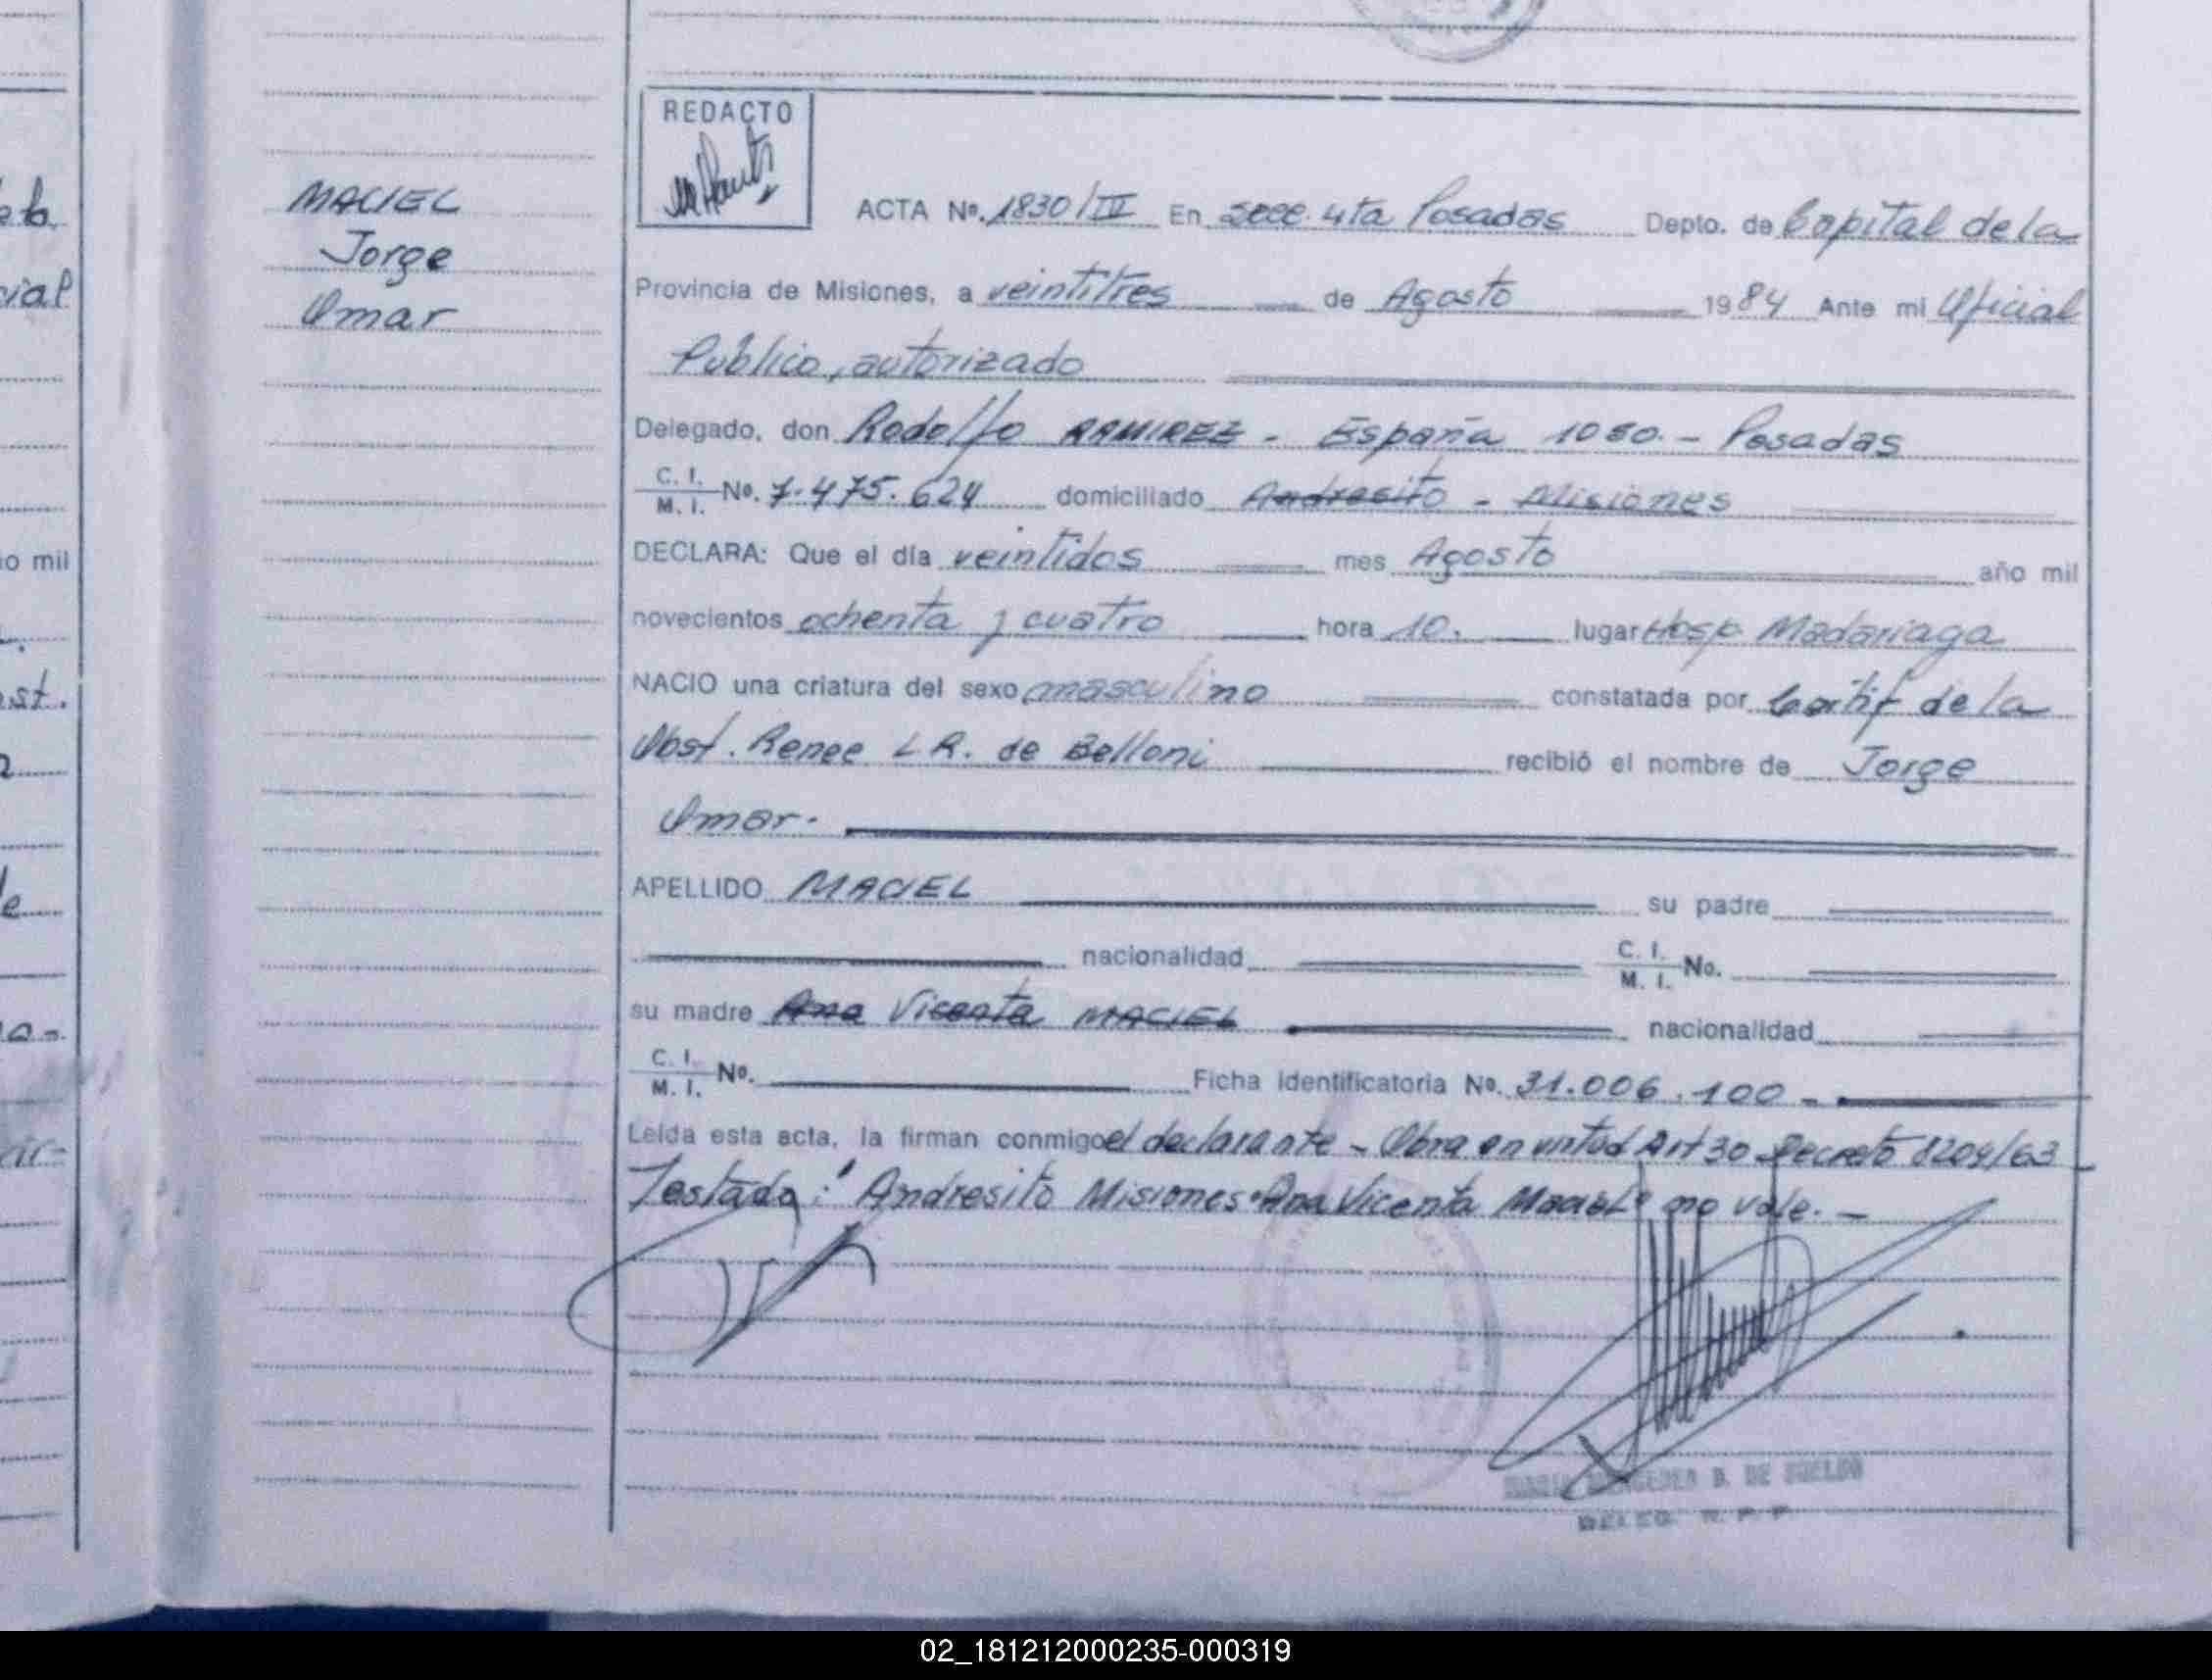 MACIEL
Jorge
Omar
REDACTO
ACTA Nº. 1830/IV En Secc. 4ta Posadas Depto. de Capital de la
Provincia de Misiones, a veintitres de Agosto 1984 Ante mi Oficial
Publico, autorizado
Delegado, don Rodolfo RAMIREZ - España 1080.- Posadas
C. I.
M. I. No. 7.475.624 domiciliado Andresito - Misiones
DECLARA: Que el día veintidos mes Agosto año mil
novecientos ochenta y cuatro hora 10. lugar Hosp. Madariaga
NACIO una criatura del sexo masculino constatada por Certif de la
Obst. Renee L R. de Belloni recibió el nombre de Jorge
Omar.
APELLIDO MACIEL su padre
nacionalidad C. I.
M. I. No.
su madre Ana Vicenta MACIEL nacionalidad
C. I.
M. I. No. Ficha identificatoria No. 31.006.100 -
Leída esta acta, la firman conmigo el declarante - Obra en virtud Art 30 Decreto 8204/63
Testado: "Andresito Misiones "Ana Vicenta Maciel" no vale. -
B. DE
02_181212000235-000319
o mil
st.